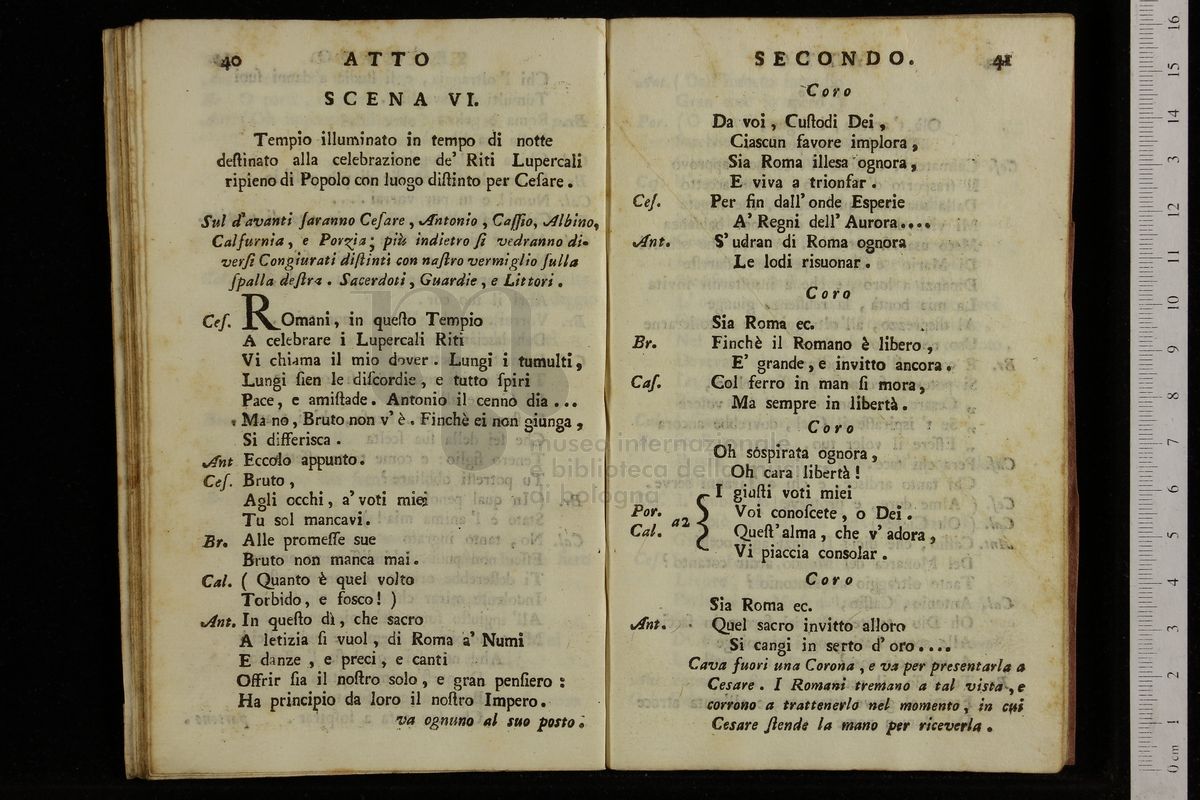 40 ATTO
SCENA VI.
Tempio illuminato in tempo di notte
deſtinato alla celebrazione de' Riti Lupercali
ripieno di Popolo con luogo diſtinto per Ceſare.
Sul d'avanti ſaranno Ceſare, Antonio, Caſſio, Albino,
Calfurnia, e Porzia; più indietro ſi vedranno di-
verſi Congiurati diſtinti con naſtro vermiglio ſulla
ſpalla deſtra. Sacerdoti, Guardie, e Littori.
Ceſ. ROmani, in queſto Tempio
A celebrare i Lupercali Riti
Vi chiama il mio dover. Lungi i tumulti,
Lungi ſien le diſcordie, e tutto ſpiri
Pace, e amiſtade. Antonio il cenno dia...
Ma no, Bruto non v'è. Finchè ei non giunga,
Si differisca.
Ant Eccolo appunto.
Ceſ. Bruto,
Agli occhi, a' voti miei
Tu sol mancavi.
Br. Alle promeſſe sue
Bruto non manca mai.
Cal. ( Quanto è quel volto
Torbido, e fosco! )
Ant. In queſto dì, che sacro
A letizia ſi vuol, di Roma a' Numi
E danze, e preci, e canti
Offrir ſia il noſtro solo, e gran penſiero:
Ha principio da loro il noſtro Impero.
va ognuno al suo posto.
SECONDO. 41
Coro
Da voi, Cuſtodi Dei,
Ciascun favore implora,
Sia Roma illesa ognora,
E viva a trionfar.
Ceſ. Per fin dall'onde Esperie
A' Regni dell' Aurora....
Ant. S' udran di Roma ognora
Le lodi risuonar.
Coro
Sia Roma ec.
Br. Finchè il Romano è libero,
E' grande, e invitto ancora.
Caſ. Col ferro in man ſi mora,
Ma sempre in libertà.
Coro
Oh sospirata ognora,
Oh cara libertà!
I giuſti voti miei
Por. Voi conoſcete, o Dei.
a2
Cal. Queſt'alma, che v' adora,
Vi piaccia consolar.
Coro
Sia Roma ec.
Ant. Quel sacro invitto alloro
Si cangi in serto d'oro....
Cava fuori una Corona, e va per presentarla a
Cesare. I Romani tremano a tal vista, e
corrono a trattenerlo nel momento, in cui
Cesare ſtende la mano per riceverla.
museo internazionale
e biblioteca della musica
di bologna
0 cm 1 2 3 4 5 6 7 8 9 10 11 12 13 14 15 16